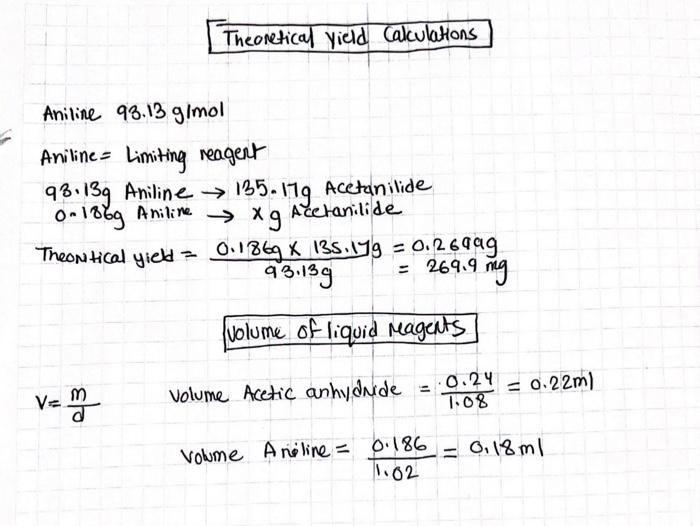 Theoretical Yield Calculations
Aniline 93.13 g/mol
Aniline = Limiting reagent
93.13g Aniline → 135.17g Acetanilide
0.186g Aniline → x g Acetanilide
Theoretical yield = 0.186g x 135.17g / 93.13g = 0.2699g
= 269.9 mg
Volume of liquid reagents
V = m/d
Volume Acetic anhydride = 0.24 / 1.08 = 0.22ml
Volume Aniline = 0.186 / 1.02 = 0.18ml